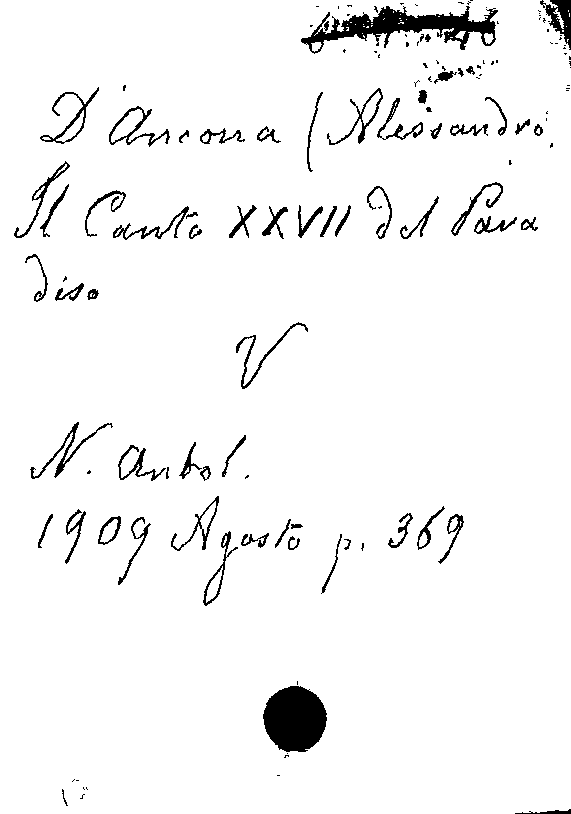 D'Ancona (Alessandro.
Il Canto XXVII del Para
diso
V
N. Antol.
1909 Agosto p. 369